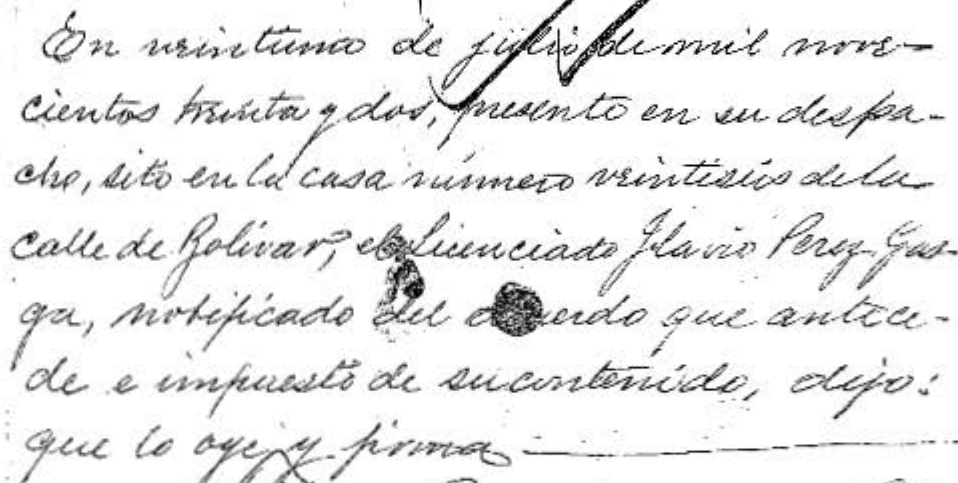 En veintiuno de julio de mil nove-
cientos treinta y dos, presente en su despa-
cho, sito en la casa número veintiseis de la
calle de Bolívar, el Licenciado Flavio Perez Gas-
ga, notificado del acuerdo que antece-
de e impuesto de su contenido, dijo:
que lo oye y firma